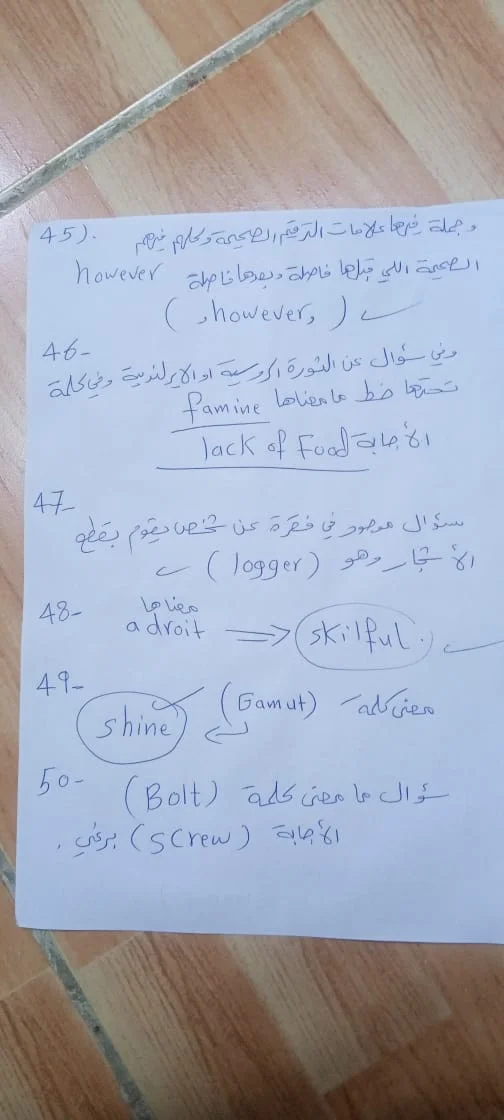 45). وجملة فيها علامات الترقيم الصحيحة وكلهم فيهم
however الصحيحة اللي قبلها فاصلة وبعدها فاصلة
( ,however, )
46- وفي سؤال عن الثورة الروسية او الايرلندية وفي كلمة
تحتها خط ما معناها famine
الأجابة lack of Food
47- سؤال موجود في فقرة عن شخص يقوم بقطع
الأشجار وهو (logger)
48- معناها
adroit ⇒ skilful.
49- معنى كلمة (Gamut)
shine
50- سؤال ما معنى كلمة (Bolt)
الأجابة (screw) برغي .